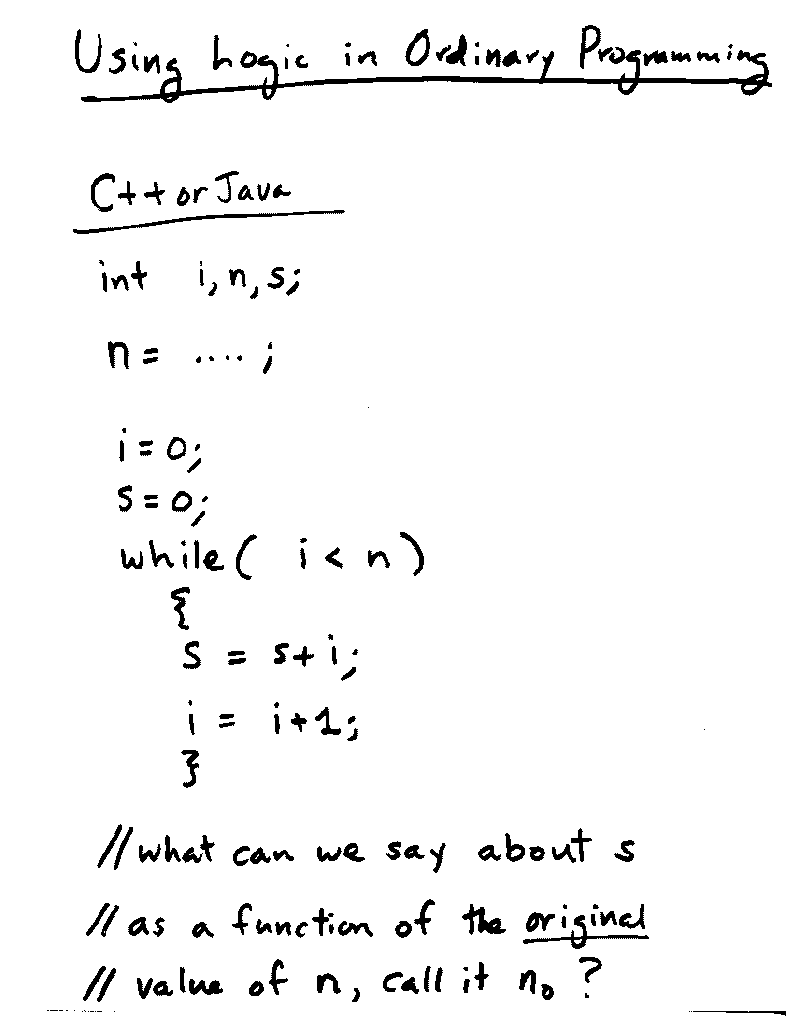 Using Logic in Ordinary Programming
C++ or Java
int i, n, s;
n = .... ;
i = 0;
s = 0;
while ( i < n )
{
s = s + i;
i = i + 1;
}
// what can we say about s
// as a function of the original
// value of n, call it n₀ ?